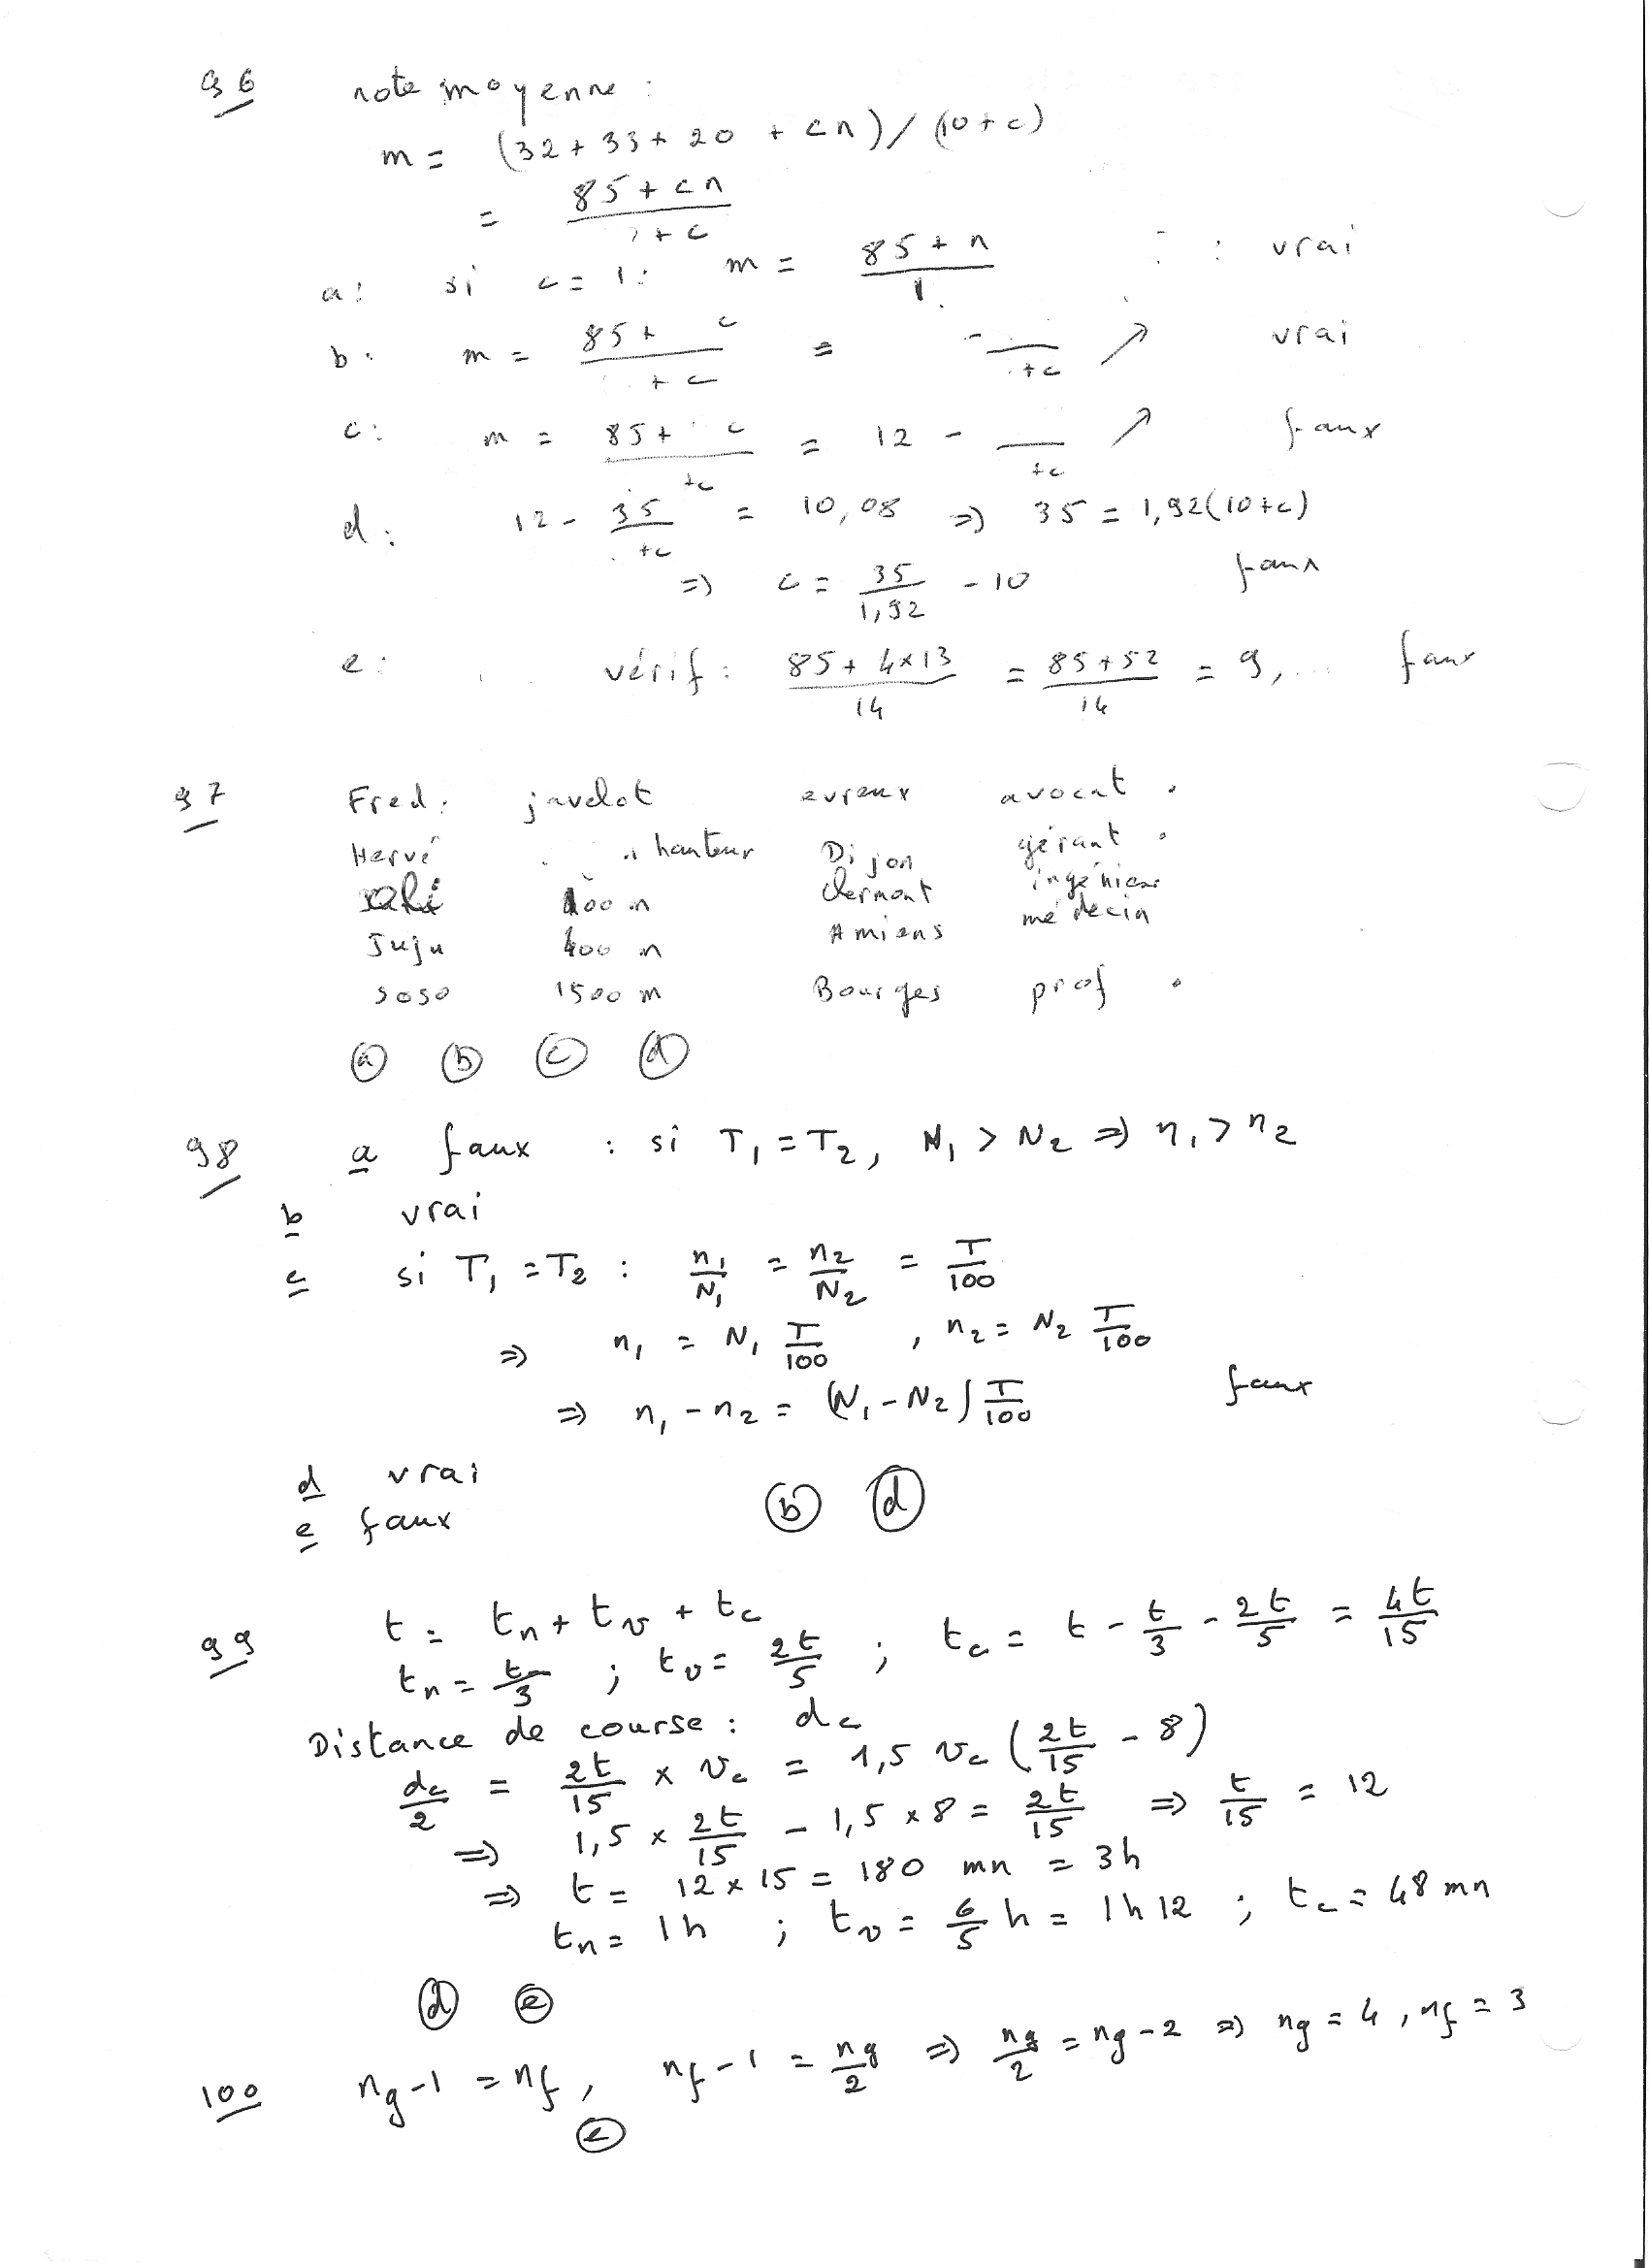 96 note moyenne :
m = (32 + 33 + 20 + cn) / (10 + c)
= (85 + cn) / ( + c)
a : si c = 1 : m = (85 + n) / 1 : vrai
b : m = (85 + c) / ( + c) = - / ( + c) ↗ vrai
c : m = (85 + c) / ( + c) = 12 - / ( + c) ↗ faux
d : 12 - 35 / ( + c) = 10,08 ⇒ 35 = 1,92(10+c)
⇒ c = 35/1,92 - 10 faux
e : vérif : (85 + 4×13)/14 = (85+52)/14 = 9,... faux
97 Fred : javelot evreux avocat .
Hervé hauteur Dijon gérant .
100 m clermont ingénieur
Juju 400 m Amiens médecin
soso 1500 m Bourges prof .
a b c d
98 a faux : si T₁ = T₂, N₁ > N₂ ⇒ n₁ > n₂
b vrai
c si T₁ = T₂ : n₁/N₁ = n₂/N₂ = T/100
⇒ n₁ = N₁ T/100 , n₂ = N₂ T/100
⇒ n₁ - n₂ = (N₁ - N₂) T/100 faux
d vrai
e faux b d
99 t = tn + tv + tc
tn = t/3 ; tv = 2t/5 ; tc = t - t/3 - 2t/5 = 4t/15
Distance de course : dc
dc/2 = 2t/15 × vc = 1,5 vc (2t/15 - 8)
⇒ 1,5 × 2t/15 - 1,5 × 8 = 2t/15 ⇒ t/15 = 12
⇒ t = 12 × 15 = 180 mn = 3h
tn = 1h ; tv = 6/5 h = 1h12 ; tc = 48 mn
d e
100 ng - 1 = nf , nf - 1 = ng/2 ⇒ ng/2 = ng - 2 ⇒ ng = 4 , nf = 3
e